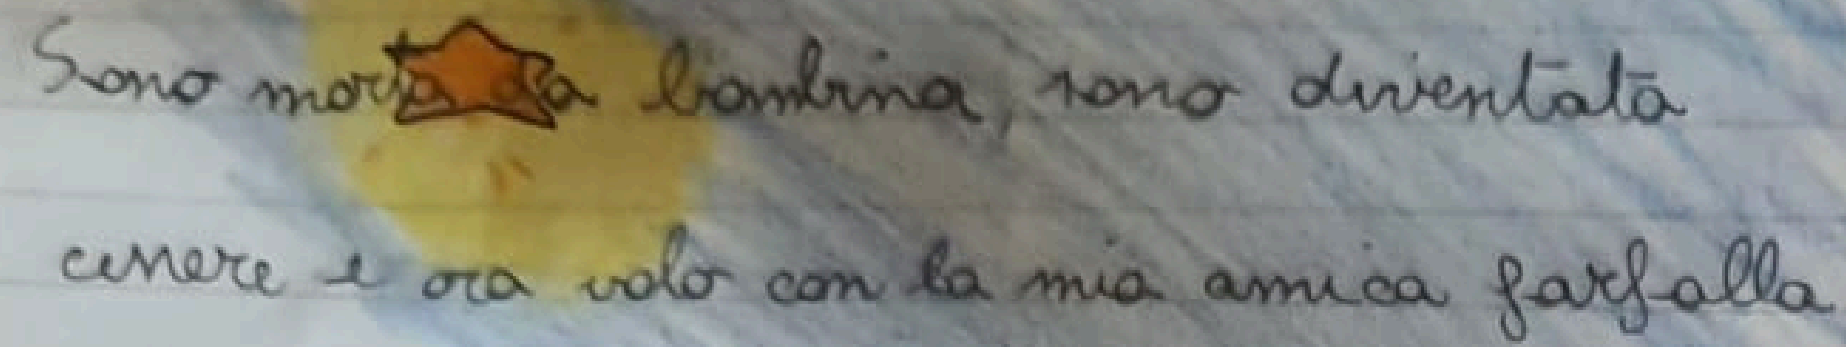 Sono morta da bambina, sono diventata
cenere e ora volo con la mia amica farfalla